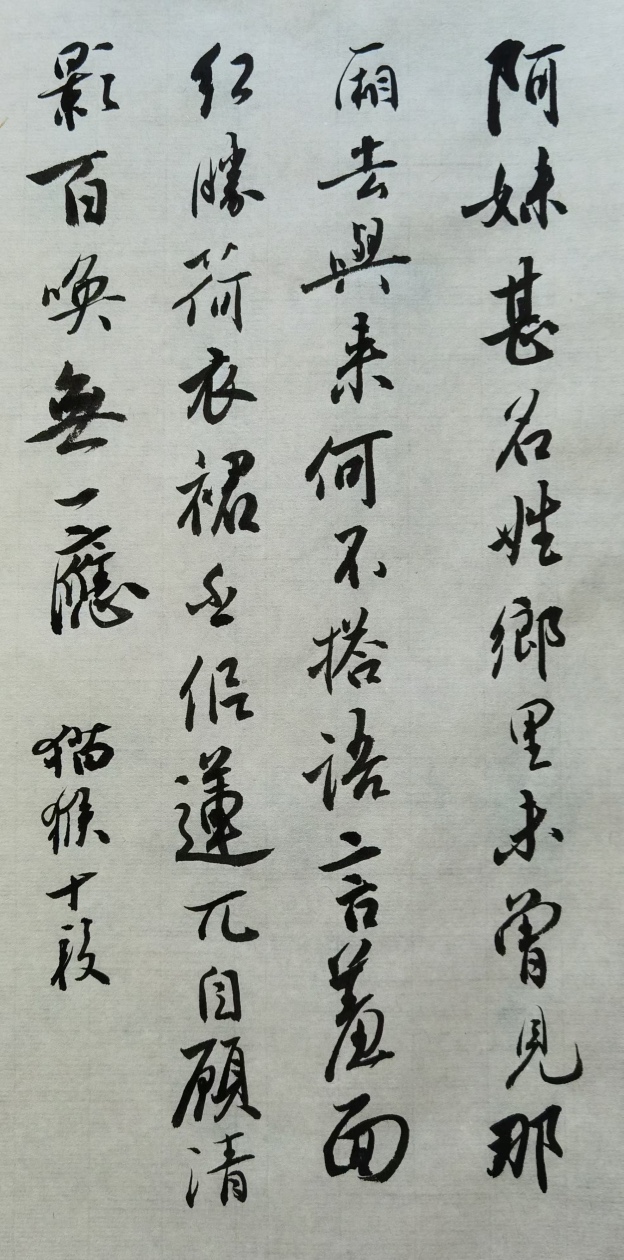 阿妹甚名姓鄉里未曾見那
厢去與来何不搭語言羞面
紅勝荷衣裙正似蓮兀自顧清
影百喚無一應
猫猴十段